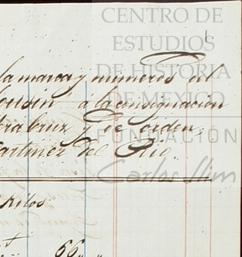 CENTRO DE
ESTUDIOS
DE HISTORIA
DE MEXICO
FUNDACIÓN
Carlos Slim
la marca y numeros
à la consignacion
y de orden
Martinez del Rio.
Kilos
66